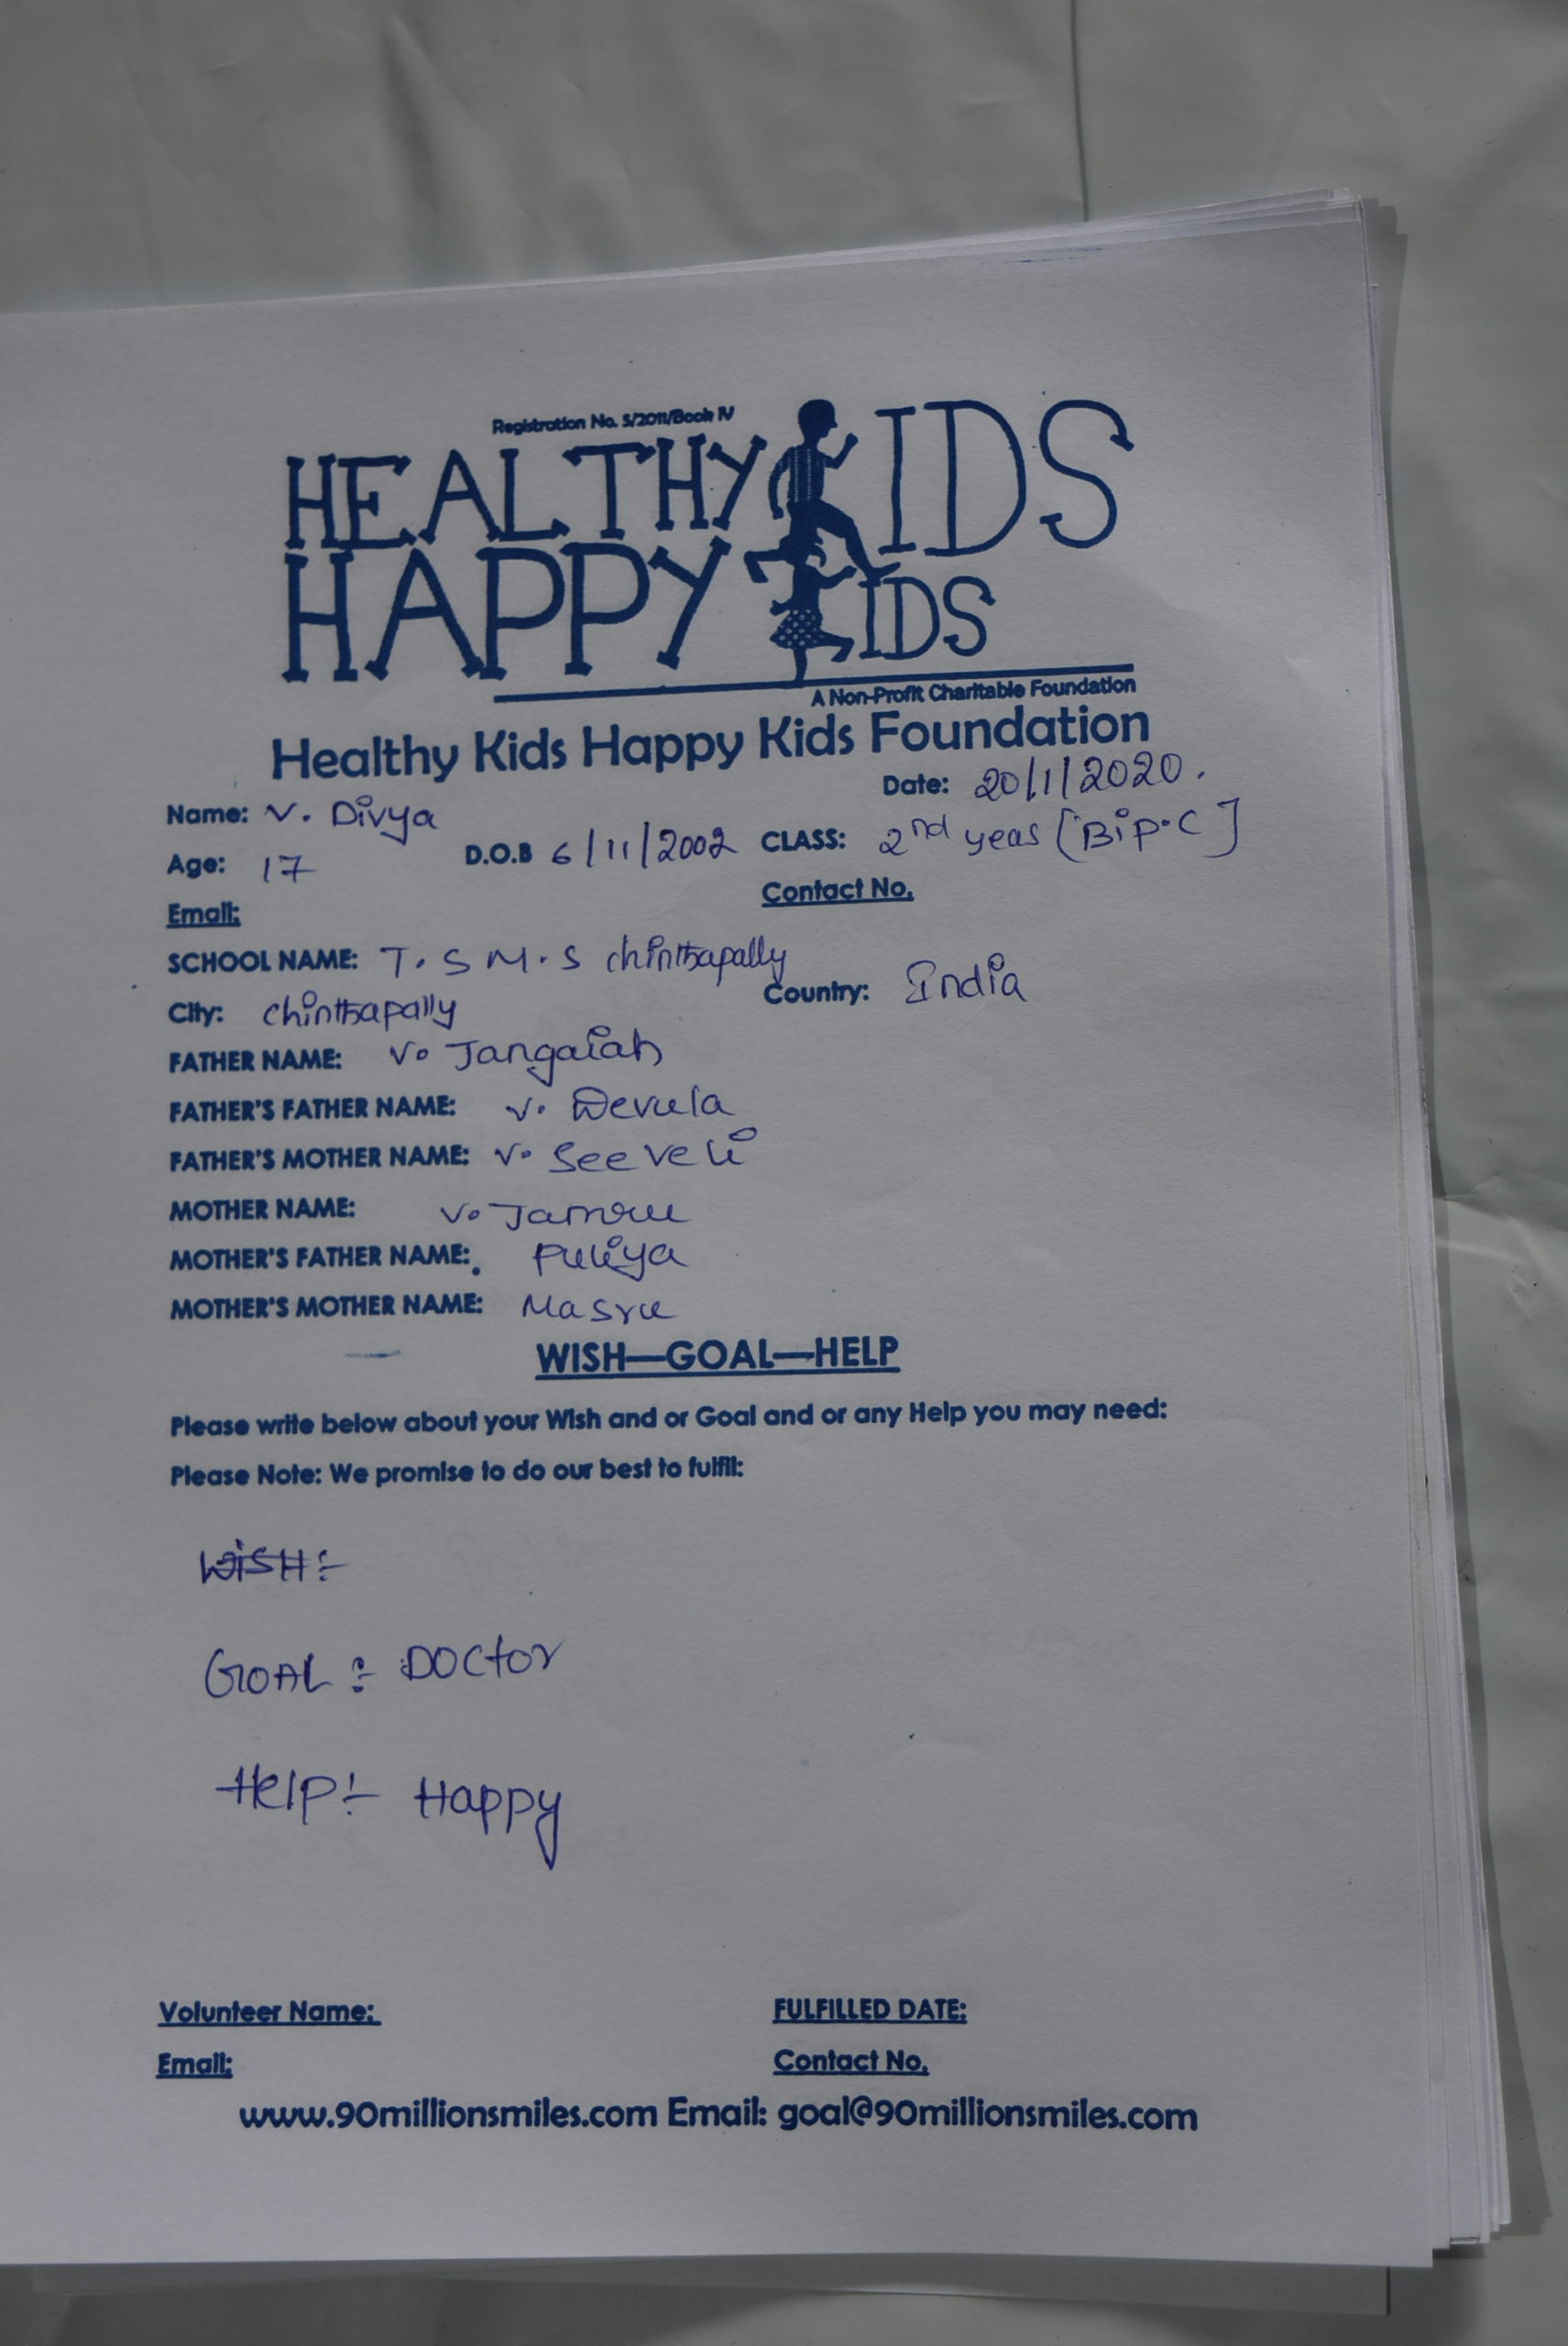 Registration No. 5/2011/Book IV
HEALTHY KIDS
HAPPY KIDS
A Non-Profit Charitable Foundation
Healthy Kids Happy Kids Foundation
Date: 20/1/2020.
Name: V. Divya
Age: 17 D.O.B 6/11/2002 CLASS: 2nd year [Bip.C]
Email: Contact No.
SCHOOL NAME: T.S M.S chinthapally
City: chinthapally Country: India
FATHER NAME: V. Jangaiah
FATHER'S FATHER NAME: V. Devula
FATHER'S MOTHER NAME: V. Seeveli
MOTHER NAME: V.
MOTHER'S FATHER NAME: Puliya
MOTHER'S MOTHER NAME: Masru
WISH—GOAL—HELP
Please write below about your Wish and or Goal and or any Help you may need:
Please Note: We promise to do our best to fulfil:
WiSH:-
GOAL :- DOCtor
Help:- Happy
Volunteer Name: FULFILLED DATE:
Email: Contact No.
www.90millionsmiles.com Email: goal@90millionsmiles.com